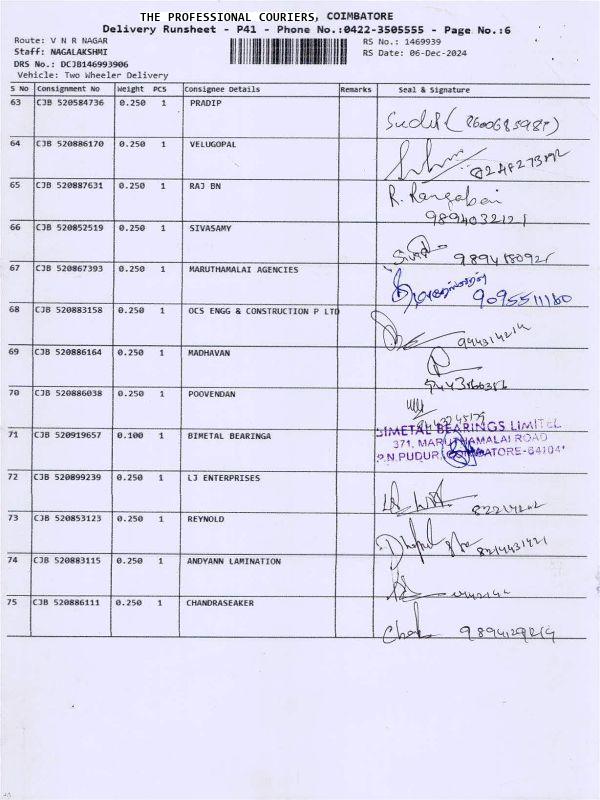 THE PROFESSIONAL COURIERS, COIMBATORE
Delivery Runsheet - P41 - Phone No.:0422-3505555 - Page No.:6
Route: V N R NAGAR RS No.: 1469939
Staff: NAGALAKSHMI RS Date: 06-Dec-2024
DRS No.: DCJB146993906
Vehicle: Two Wheeler Delivery
S No Consignment No Weight PCS Consignee Details Remarks Seal & Signature
63 CJB 520584736 0.250 1 PRADIP
64 CJB 520886170 0.250 1 VELUGOPAL
65 CJB 520887631 0.250 1 RAJ BN R. Rangabai
9894032121
66 CJB 520852519 0.250 1 SIVASAMY
67 CJB 520867393 0.250 1 MARUTHAMALAI AGENCIES 9095511160
68 CJB 520883158 0.250 1 OCS ENGG & CONSTRUCTION P LTD
69 CJB 520886164 0.250 1 MADHAVAN
70 CJB 520886038 0.250 1 POOVENDAN
71 CJB 520919657 0.100 1 BIMETAL BEARINGA BIMETAL BEARINGS LIMITED
371, MARUTHAMALAI ROAD
P.N.PUDUR, COIMBATORE-641041
72 CJB 520899239 0.250 1 LJ ENTERPRISES
73 CJB 520853123 0.250 1 REYNOLD
74 CJB 520883115 0.250 1 ANDYANN LAMINATION
75 CJB 520886111 0.250 1 CHANDRASEAKER